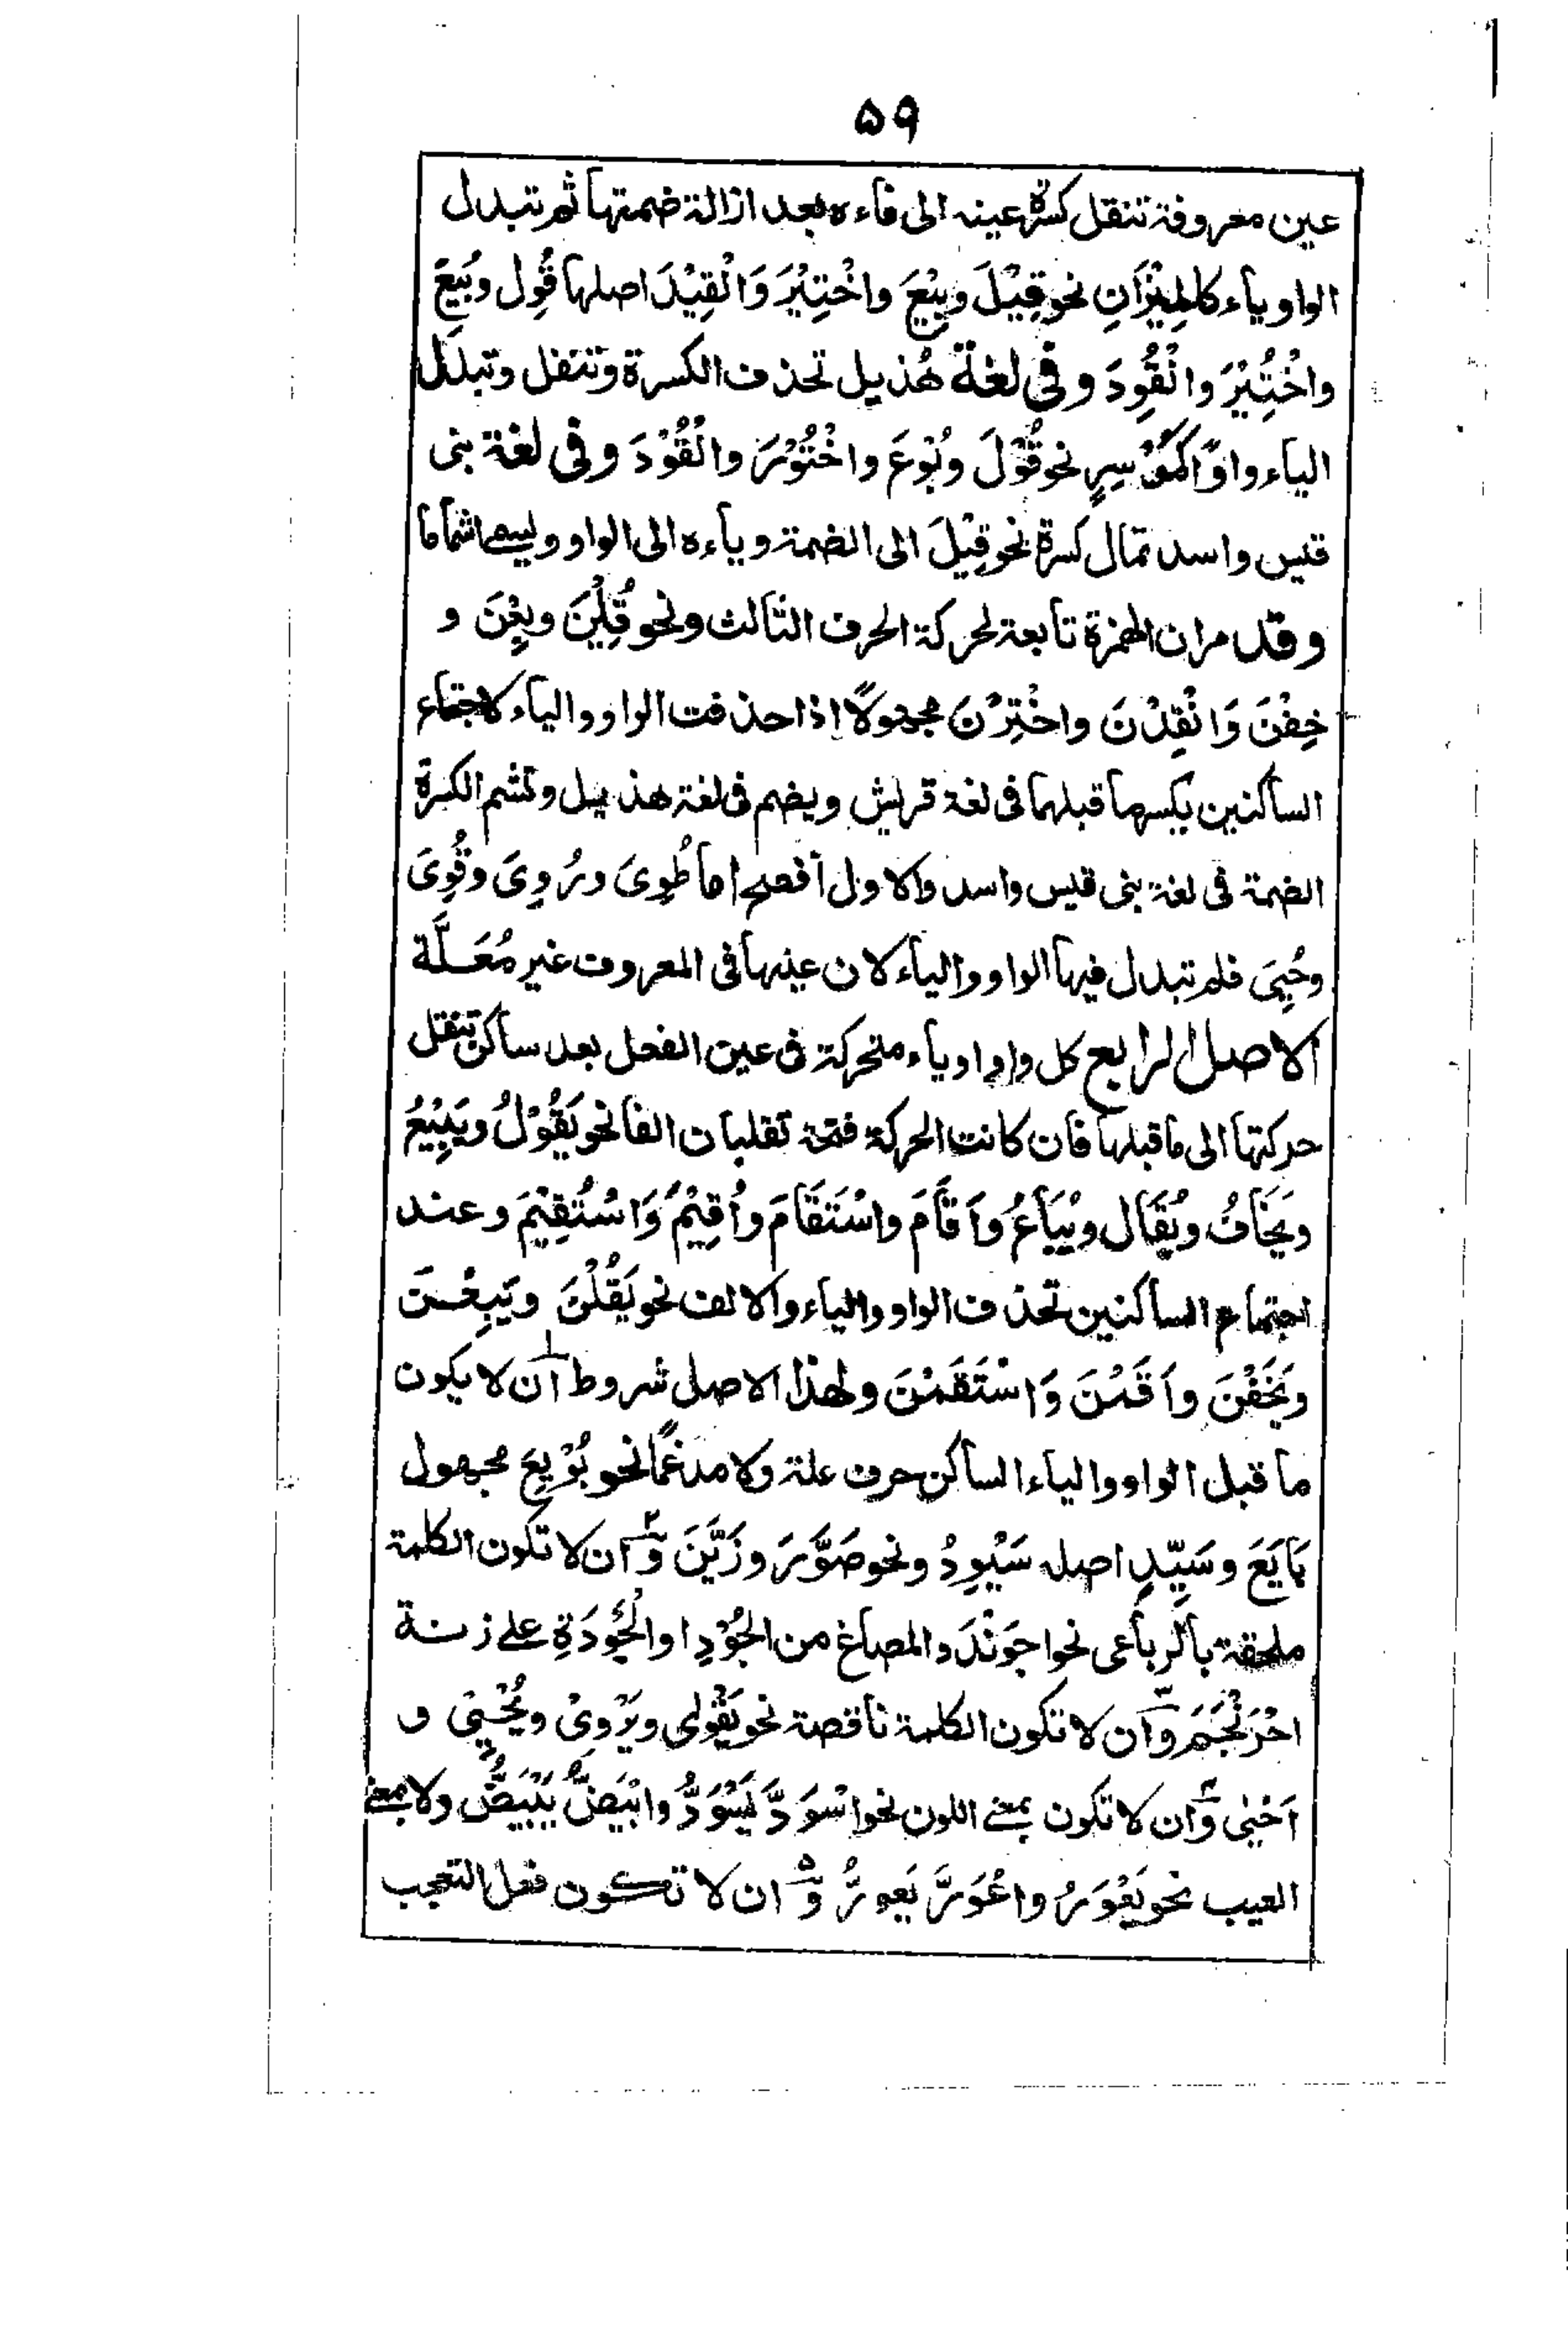 ۵۹
عين معروفة تنقل كسرة عينه الى فاءه بعد ازالة ضمتها ثم تبدل
الواو ياء كالمِيْزَانِ نحو قِيْلَ وبِيْعَ واخْتِيْرَ وَانْقِيْدَ اصلها قُوِل وبُيِعَ
واخْتُيِرَ وانْقُوِدَ وفي لغة هُذيل تحذف الكسرة وتنقل وتبدل
الياء واوًا كَمُوْسِرٍ نحو قُوْلَ وبُوْعَ واخْتُوْرَ وانْقُوْدَ وفي لغة بنى
قيس واسد تمال كسرة نحو قِيْلَ الى الضمة وياءه الى الواو ويسمى اشماما
وقد مر ان الهمزة تابعة لحركة الحرف الثالث ونحو قُلِْنَ وبِعْنَ و
خِفْنَ وَانْقِدْنَ واخْتِرْنَ مجهولاً اذا حذفت الواو والياء لاجتماع
الساكنين يكسر ما قبلهما فى لغة قريش ويضم فى لغة هذيل وتشم الكسرة
الضمة فى لغة بنى قيس واسد والاول أفصح اما طُوِىَ ورُوِىَ وقُوِىَ
وحُيِىَ فلم تبدل فيها الواو والياء لان عينها فى المعروف غير مُعَلَّة
الاصل الرابع كل واو او ياء متحركة فى عين الفعل بعد ساكن تنقل
حركتها الى ما قبلها فان كانت الحركة فتحة تقلبان الفا نحو يَقُوْلُ ويَبِيْعُ
ويَخَافُ ويُقَال ويُبَاعُ وَاَقَامَ واسْتَقَامَ واُقِيْمَ وَاسْتُقِيْمَ وعند
اجتماع الساكنين تحذف الواو والياء والالف نحو يَقُلْنَ ويَبِعْنَ
ويَخَفْنَ واَقَمْنَ وَاسْتَقَمْنَ ولهذا الاصل شروط ۱ ان لا يكون
ما قبل الواو والياء الساكن حرف علة ولا مدغمًا نحو بُوْيِعَ مجهول
بَايَعَ وسَيِّدٍ اصله سَيْوِدُ ونحو صَوَّرَ وزَيَّنَ و۲ ان لا تكون الكلمة
ملحقة بالرباعى نحو اجوَنْدَدَ المصاغ من الجُوْدِ او الجَُوْدَةِ على زنة
احْرَنْجَمَ و۳ ان لا تكون الكلمة ناقصة نحو يَقْوٰى ويَرْوِىْ ويُحْيِىْ و
اَحْيٰى و۴ ان لا تكون بمعنے اللون نحو اسْوَدَّ يَسْوَدُّ وابْيَضَّ يَبْيَضُّ ولا بمعنے
العيب نحو يَعْوَرُ واعْوَرَّ يَعورُّ و۵ ان لا تكون فعل التعجب